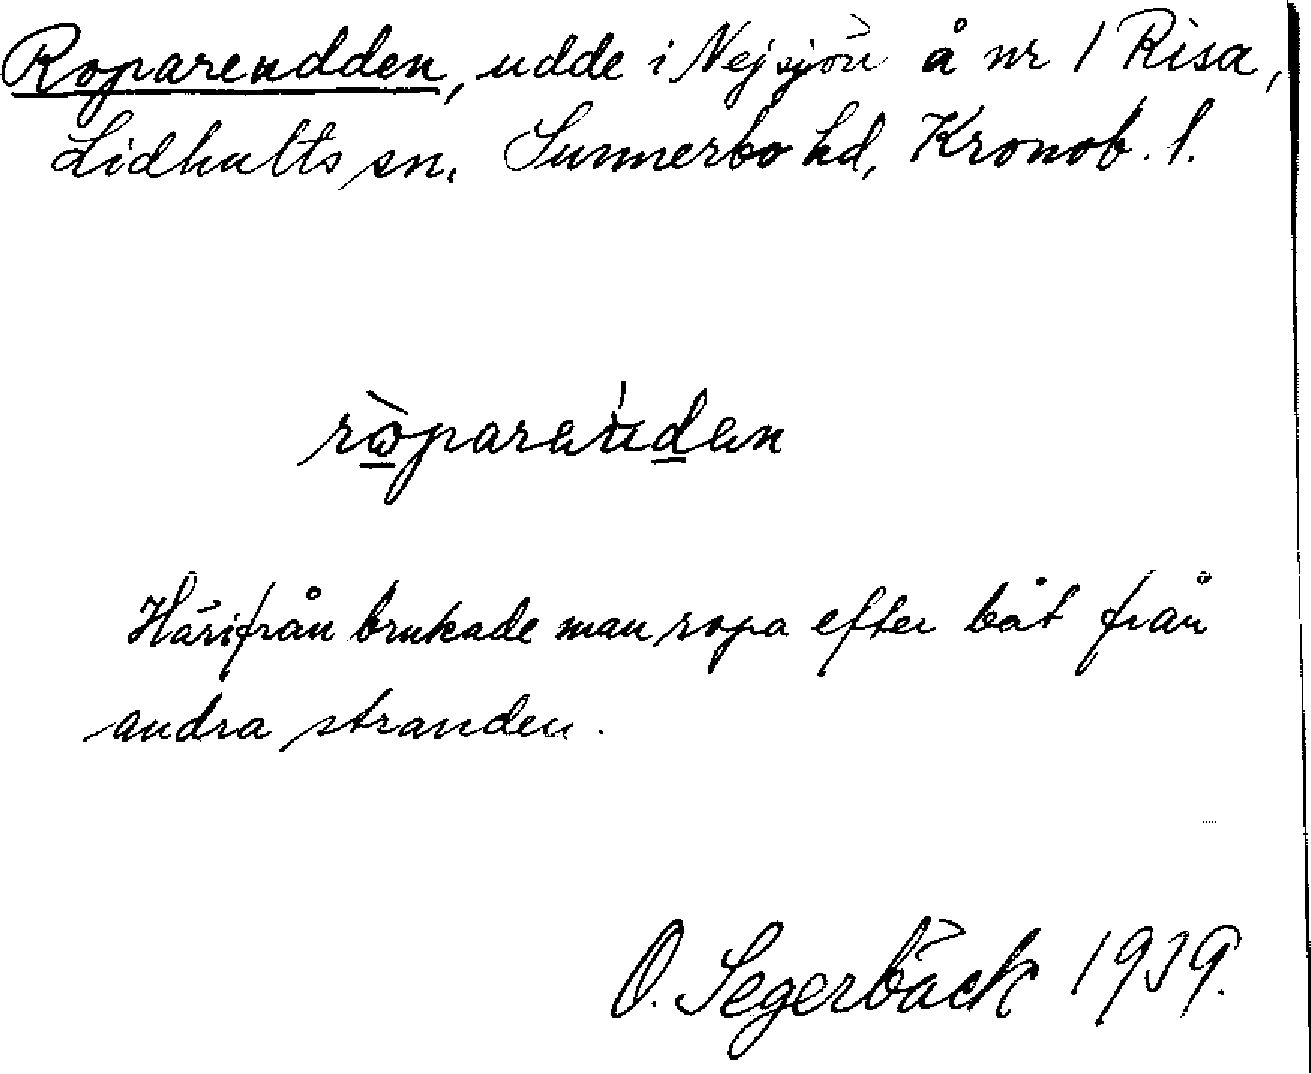 Ropareudden, udde i Nejsjön å nr 1 Risa,
Lidhults sn. Sunnerbo hd, Kronob. l.
ròpareúden
Härifrån brukade man ropa efter båt från
andra stranden.
O. Segerbäck 1939.